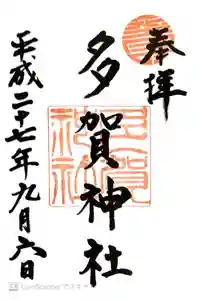 奉拝
多賀神社
平成二十七年九月六日
CamScannerでスキャン